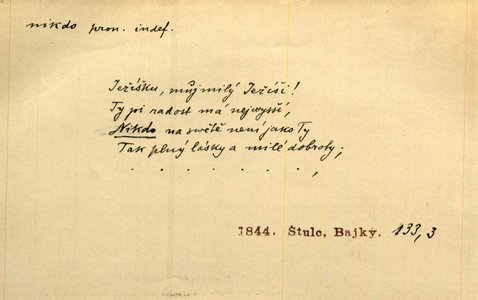 nikdo pron. indef.
Ježíšku, můj milý Ježíši!
Ty jsi radost má nejwyšší,
Nikdo na swětě není jako Ty
Tak plný lásky a milé dobroty;
. . . . . . . ,
1844. Štulc, Bajky. 133, 3